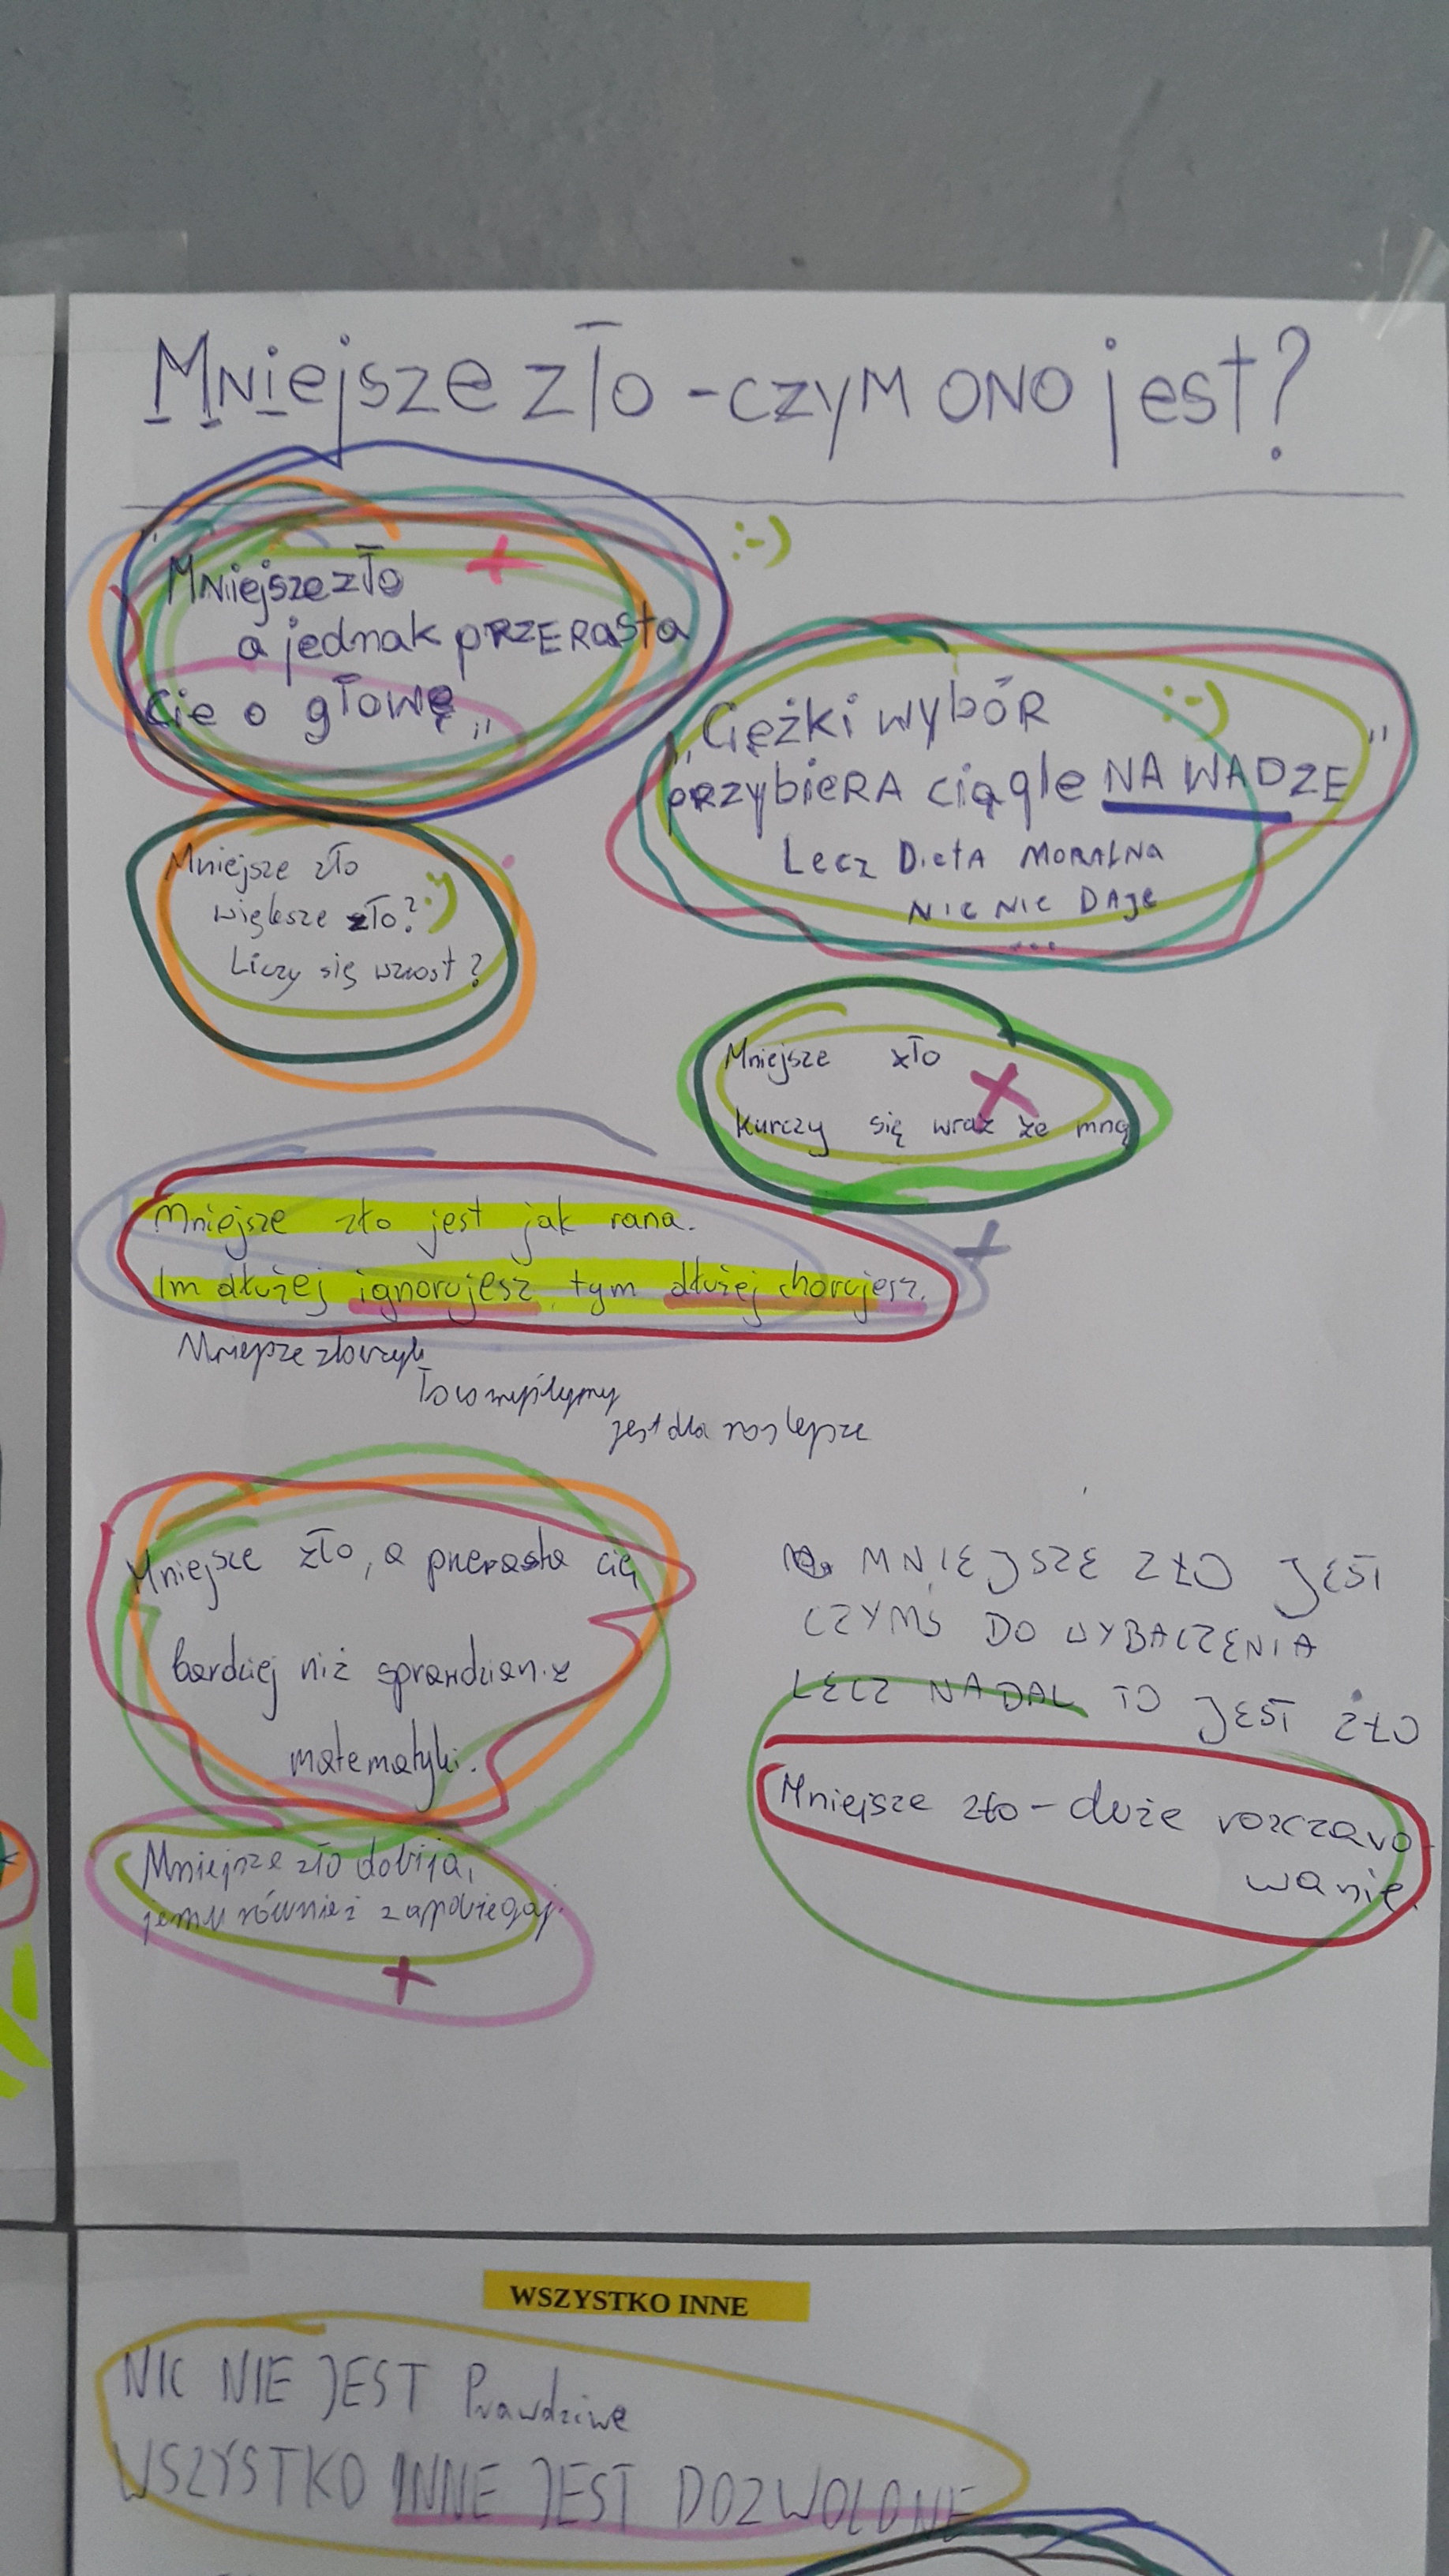 Mniejsze zło - czym ono jest?
"Mniejsze zło
a jednak przerasta
cię o głowę"
:-)
"Ciężki wybór :-)
przybiera ciągle NA WADZE"
Lecz Dieta MORALNA
NIC NIE DAJE
...
Mniejsze zło
większe zło? :)
Liczy się wzrost?
Mniejsze zło
kurczy się wraz ze mną
Mniejsze zło jest jak rana.
Im dłużej ignorujesz, tym dłużej chorujesz.
Mniejsze zło czyli
To co myślymy
jest dla nas lepsze
Mniejsze zło, a przerasta cię
bardziej niż sprawdzian z
matematyki.
MNIEJSZE ZŁO JEST
CZYMŚ DO WYBACZENIA
LECZ NADAL TO JEST ZŁO
Mniejsze zło - duże rozczaro-
wanie.
Mniejsze zło dobija,
jemu również zapobiegaj.
WSZYSTKO INNE
NIC NIE JEST Prawdziwe
WSZYSTKO INNE JEST DOZWOLONE